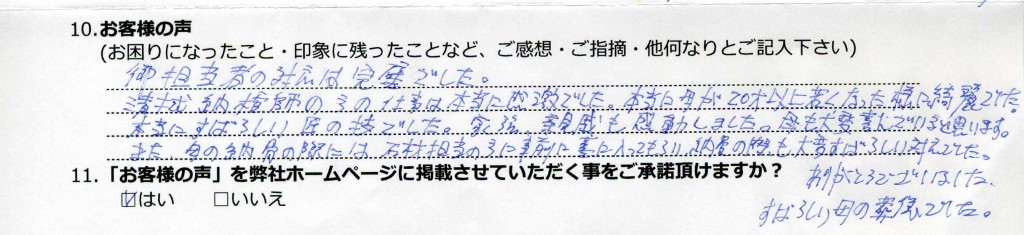 10.お客様の声
(お困りになったこと・印象に残ったことなど、ご感想・ご指摘・他何なりとご記入下さい)
御担当者の対応は完璧でした。
納棺師の方の仕事は本当に感激でした。本当に母が20才以上若くなった様に綺麗でした。
本当にすばらしい匠の技でした。家族 親戚も感動しました。母も大変喜んでいると思います。
また 母の納骨の際には 石材担当の方に事前に 入ってもらい 納骨の際も大変すばらしい対応でした。
ありがとうございました。
すばらしい母の葬儀でした。
11.「お客様の声」を弊社ホームページに掲載させていただく事をご承諾頂けますか？
☑はい □いいえ